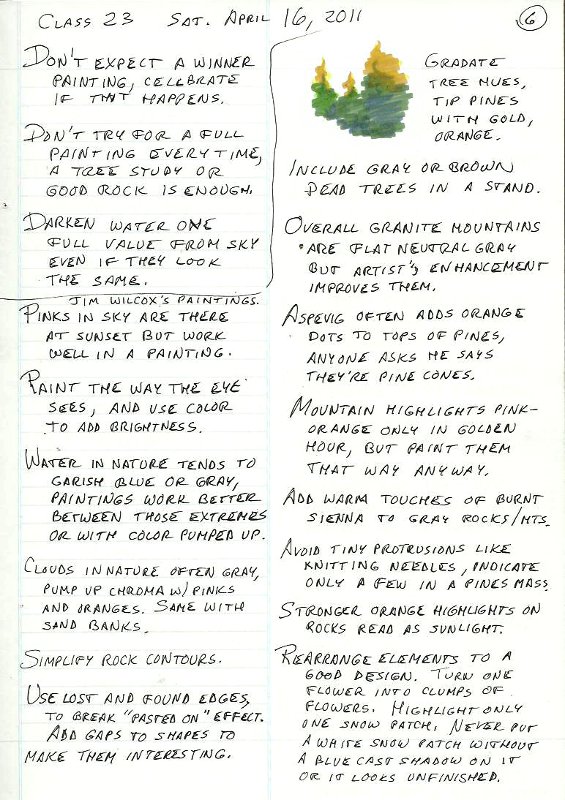 CLASS 23 SAT. APRIL 16, 2011
6
DON'T EXPECT A WINNER
PAINTING, CELEBRATE
IF THAT HAPPENS.
DON'T TRY FOR A FULL
PAINTING EVERY TIME,
A TREE STUDY OR
GOOD ROCK IS ENOUGH.
DARKEN WATER ONE
FULL VALUE FROM SKY
EVEN IF THEY LOOK
THE SAME.
JIM WILCOX'S PAINTINGS.
PINKS IN SKY ARE THERE
AT SUNSET BUT WORK
WELL IN A PAINTING.
PAINT THE WAY THE EYE
SEES, AND USE COLOR
TO ADD BRIGHTNESS.
WATER IN NATURE TENDS TO
GARISH BLUE OR GRAY,
PAINTINGS WORK BETTER
BETWEEN THOSE EXTREMES
OR WITH COLOR PUMPED UP.
CLOUDS IN NATURE OFTEN GRAY,
PUMP UP CHROMA W/ PINKS
AND ORANGES. SAME WITH
SAND BANKS.
SIMPLIFY ROCK CONTOURS.
USE LOST AND FOUND EDGES,
TO BREAK "PASTED ON" EFFECT.
ADD GAPS TO SHAPES TO
MAKE THEM INTERESTING.
GRADATE
TREE HUES,
TIP PINES
WITH GOLD,
ORANGE.
INCLUDE GRAY OR BROWN
DEAD TREES IN A STAND.
OVERALL GRANITE MOUNTAINS
ARE FLAT NEUTRAL GRAY
BUT ARTIST'S ENHANCEMENT
IMPROVES THEM.
ASPEVIG OFTEN ADDS ORANGE
DOTS TO TOPS OF PINES,
ANYONE ASKS HE SAYS
THEY'RE PINE CONES.
MOUNTAIN HIGHLIGHTS PINK-
ORANGE ONLY IN GOLDEN
HOUR, BUT PAINT THEM
THAT WAY ANYWAY.
ADD WARM TOUCHES OF BURNT
SIENNA TO GRAY ROCKS/MTS.
AVOID TINY PROTRUSIONS LIKE
KNITTING NEEDLES, INDICATE
ONLY A FEW IN A PINES MASS.
STRONGER ORANGE HIGHLIGHTS ON
ROCKS READ AS SUNLIGHT.
REARRANGE ELEMENTS TO A
GOOD DESIGN. TURN ONE
FLOWER INTO CLUMPS OF
FLOWERS. HIGHLIGHT ONLY
ONE SNOW PATCH. NEVER PUT
A WHITE SNOW PATCH WITHOUT
A BLUE CAST SHADOW ON IT
OR IT LOOKS UNFINISHED.